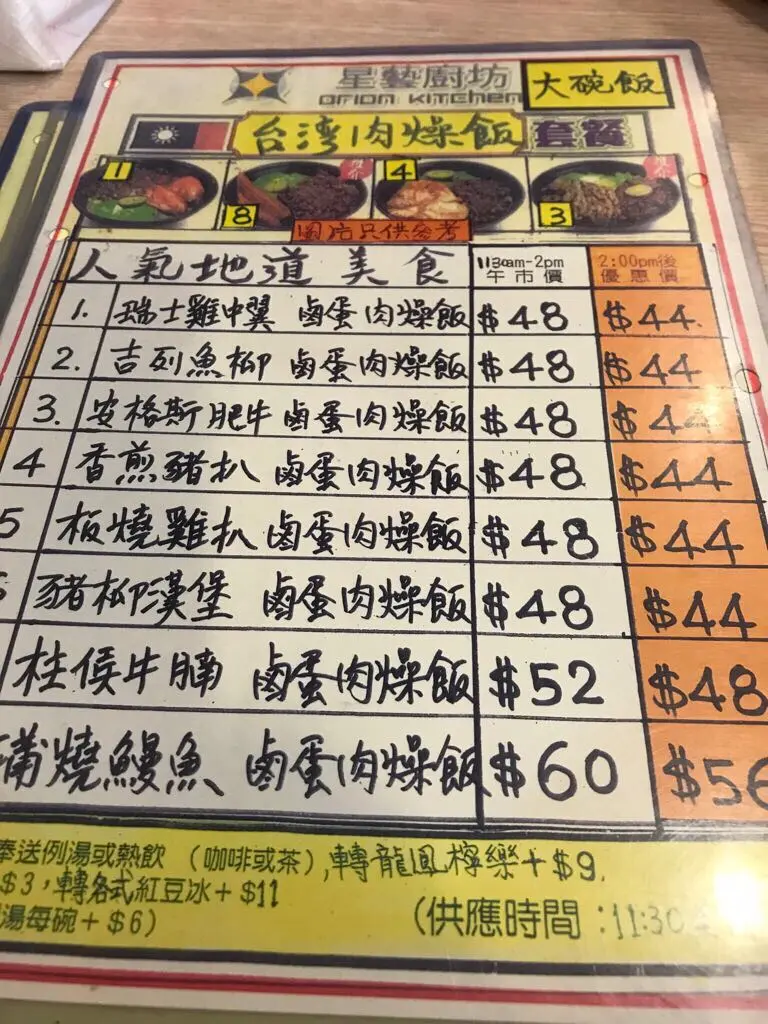 星藝廚坊
ORION KITCHEN
大碗飯
台湾肉燥飯 套餐
1
8
推介
4
3
推介
圖片只供參考
人氣地道美食 11:30am-2pm 午市價 2:00pm後 優惠價
1. 瑞士雞中翼 鹵蛋肉燥飯 $48 $44
2. 吉列魚柳 鹵蛋肉燥飯 $48 $44
3. 安格斯肥牛 鹵蛋肉燥飯 $48 $4
4 香煎豬扒 鹵蛋肉燥飯 $48 $44
5 板燒雞扒 鹵蛋肉燥飯 $48 $44
豬柳漢堡 鹵蛋肉燥飯 $48 $44
柱侯牛腩 鹵蛋肉燥飯 $52 $48
蒲燒鰻魚 鹵蛋肉燥飯 $60 $56
奉送例湯或熱飲（咖啡或茶）,轉龍鳳檸樂+$9.
$3，轉各式紅豆冰+$11
湯每碗+$6） （供應時間：11:30